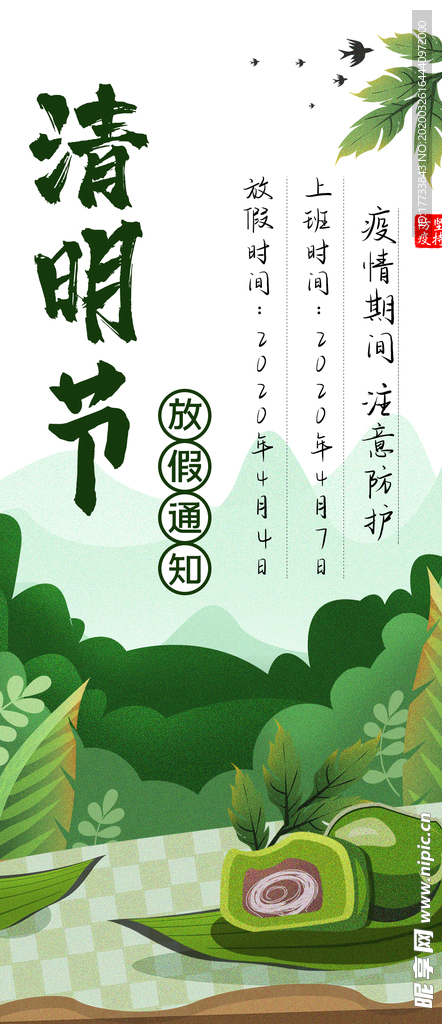 清明节
放假通知
疫情期间 注意防护
上班时间：2020年4月7日
放假时间：2020年4月4日
坚持
防疫
昵享网 www.nipic.cn